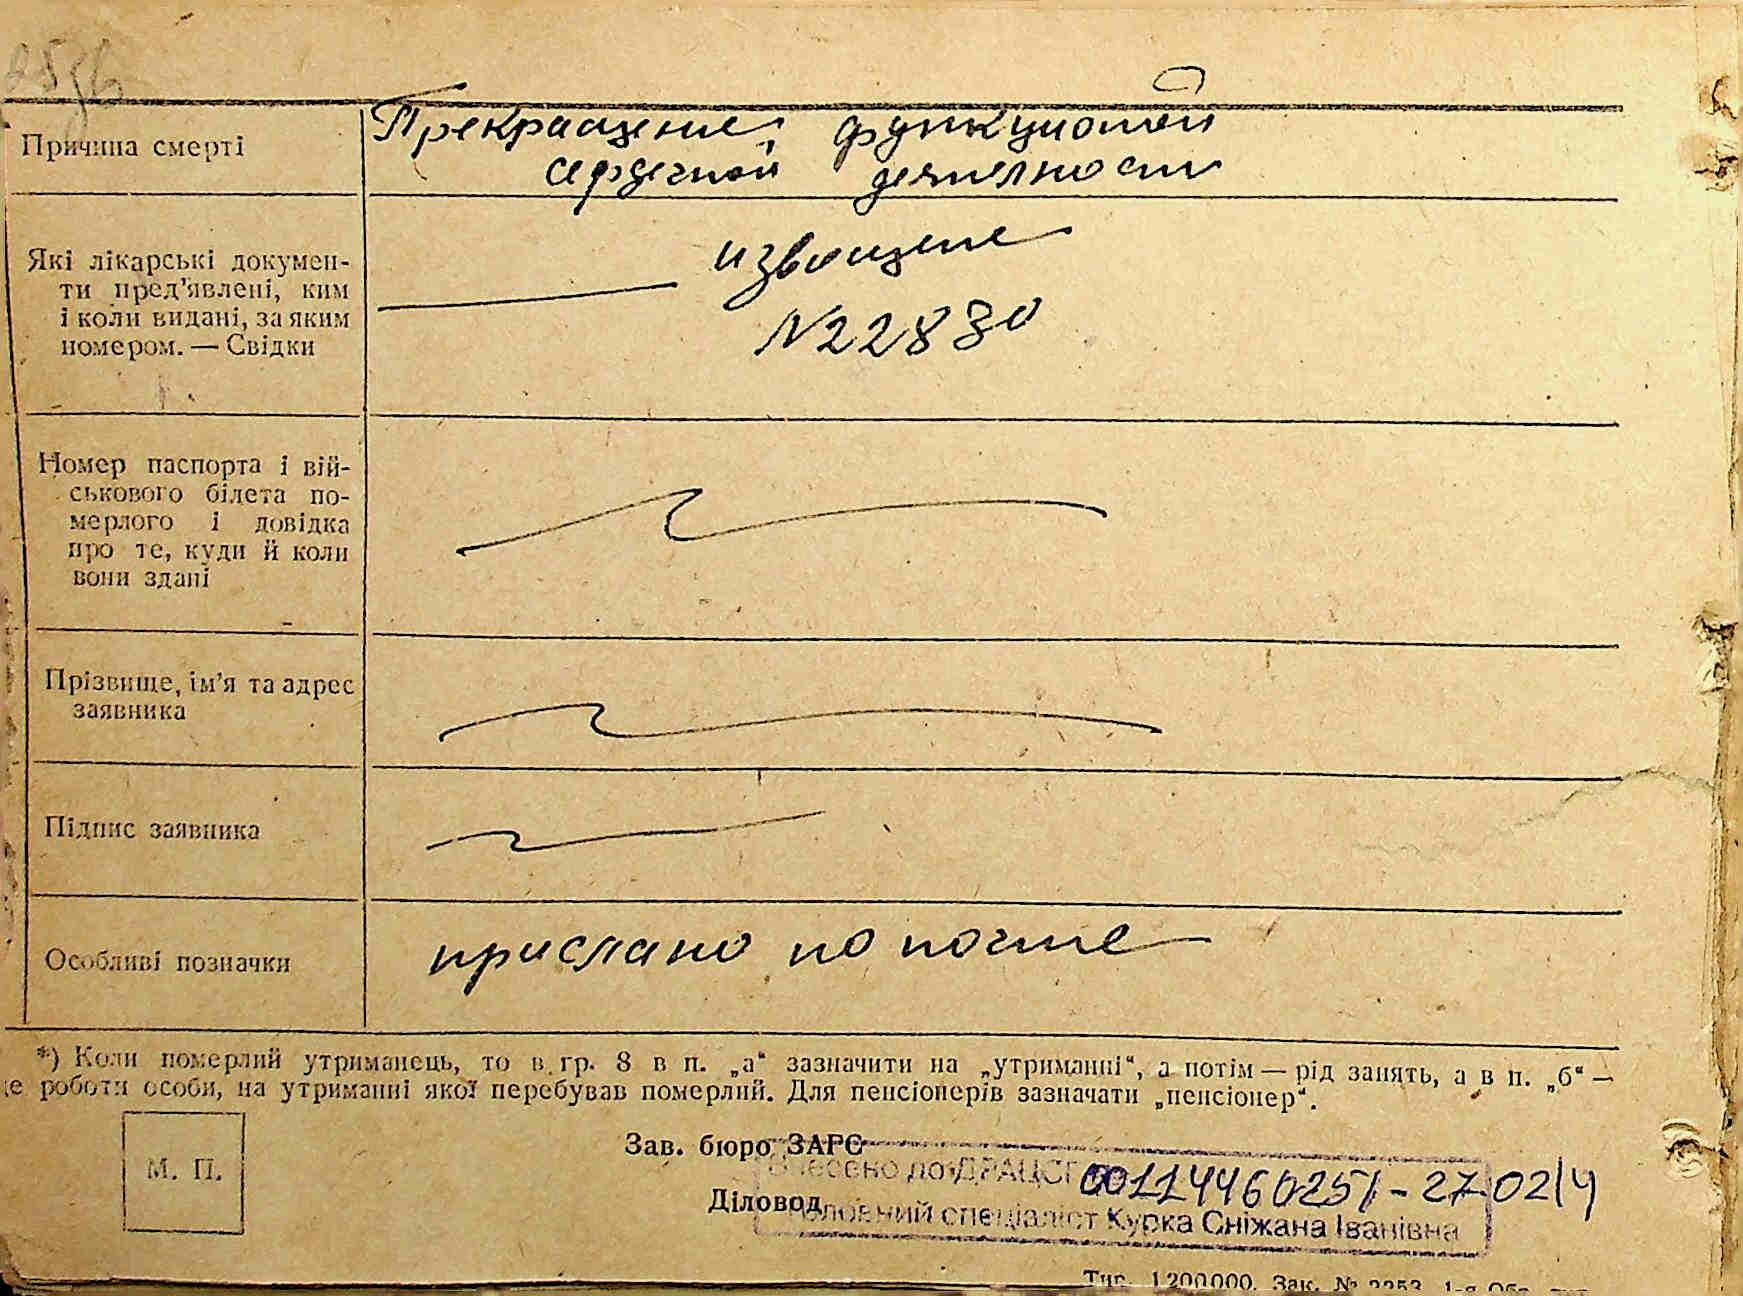 Причина смерті
Прекращение функционой
сердечной деятелности
Які лікарські докумен-
ти пред'явлені, ким
і коли видані, за яким
номером. — Свідки
извещене
N 22830
Номер паспорта і вій-
ськового білета по-
мерлого і довідка
про те, куди й коли
вони здані
Прізвище, ім'я та адрес
заявника
Підпис заявника
Особливі позначки
прислано по почте
*) Коли померлий утриманець, то в гр. 8 в п. „а“ зазначити на „утриманні“, а потім — рід занять, а в п. „б“ —
це роботи особи, на утриманні якої перебував померлий. Для пенсіонерів зазначати „пенсіонер“.
М. П.
Зав. бюро ЗАГС
Внесено до ДРАЦСГ 00114460251-27.02.14
Діловод
Головний спеціаліст Курка Сніжана Іванівна
Тир. 1.200.000. Зак. № 2253. 1-я